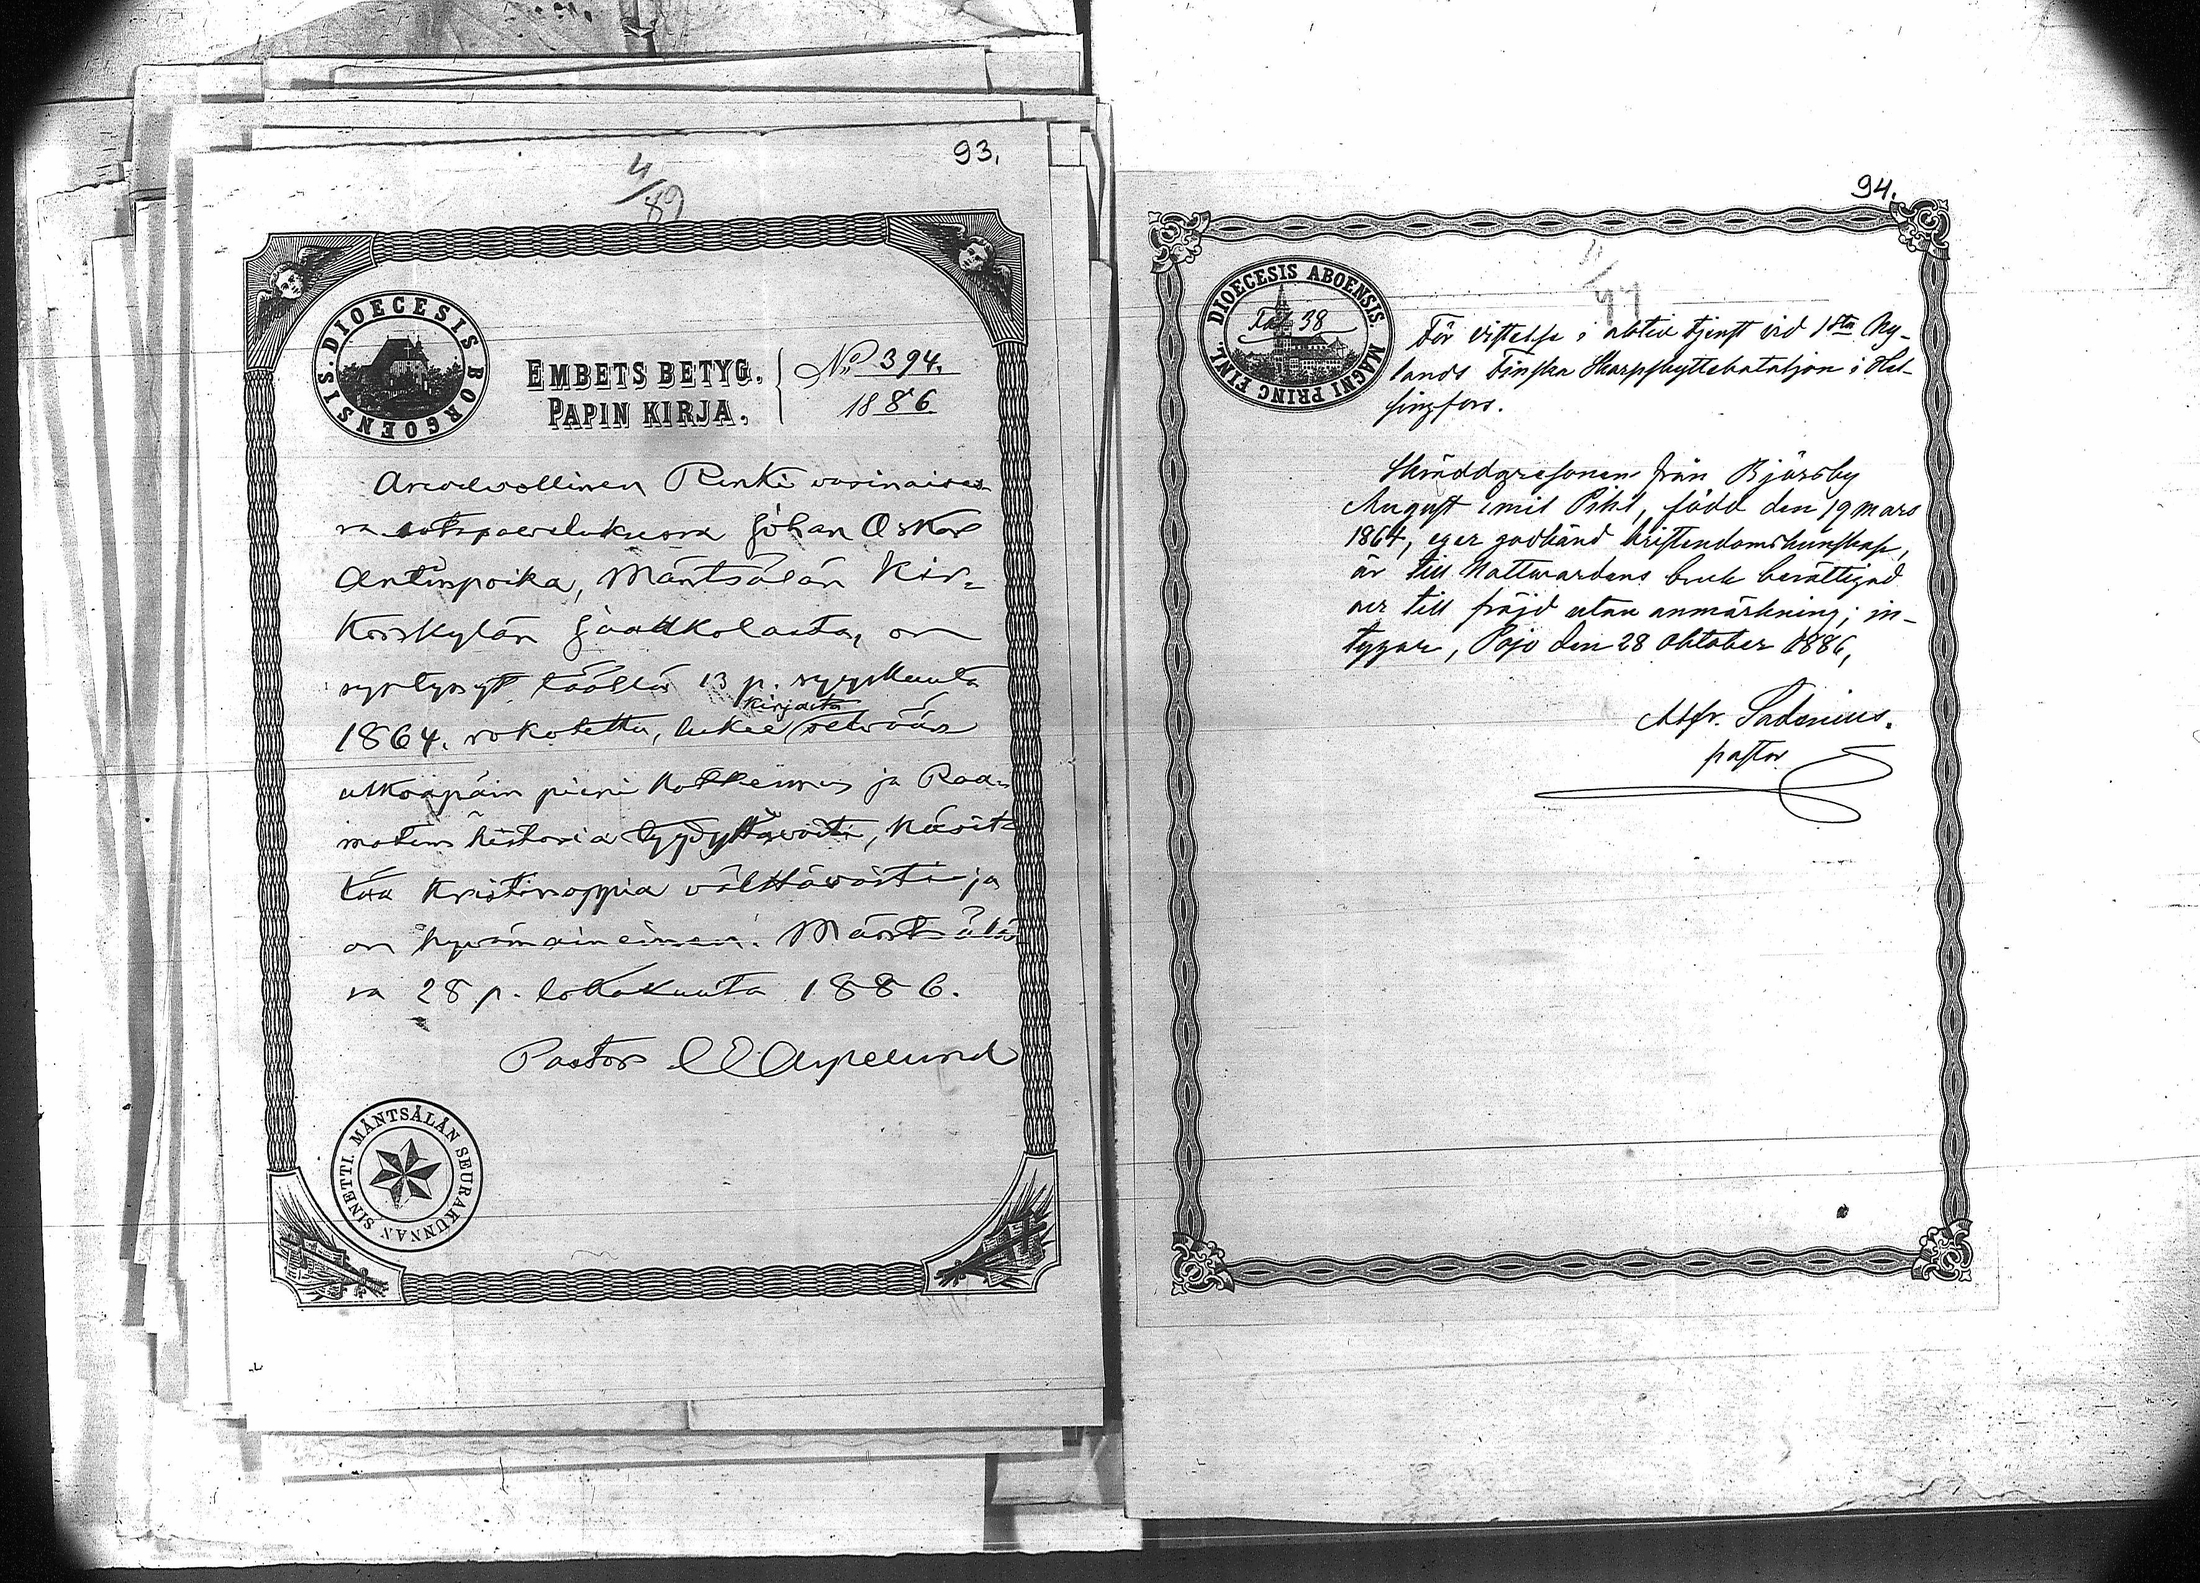 93.
4/89
DIOECESIS BORGOENSIS.
EMBETS BETYG.
PAPIN KIRJA.
No 394.
1886
Arvodvollinen Renki varinaises
sa sotapalveluksessa Johan Oskar
Antinpoika, Mäntsälän Kir-
konkylän Jaakkolasta, on
syntynyt täällä 13 p. syyskuuta
1864. rokotettu, lukee kirjasta selvään
ulkoapäin pieni katkesmus ja Raa-
matun historia tyydyttävästi, käsit-
tää Kristinoppia välttävästi ja
on hyvämaineinen. Mäntsäläs
sä 28 p. lokakuuta 1886.
Pastor
MÄNTSÄLÄN SEURAKUNNAN SINETTI.
94.
DIOECESIS ABOENSIS. MAGNI PRINC FINL.
38
För vistelse i aktiv tjenst vid 1sta Ny-
lands Finska Skarpskyttebataljon i Hel-
singfors.
från Bjärsby
August Emil Pihl, född den 19 mars
1864, eger godkänd kristendomskunskap,
är till Nattvardens bruk berättigad
och till fräjd utan anmärkning; in-
tygar, Pojo den 28 oktober 1886,
Alfr. Sadenius.
pastor